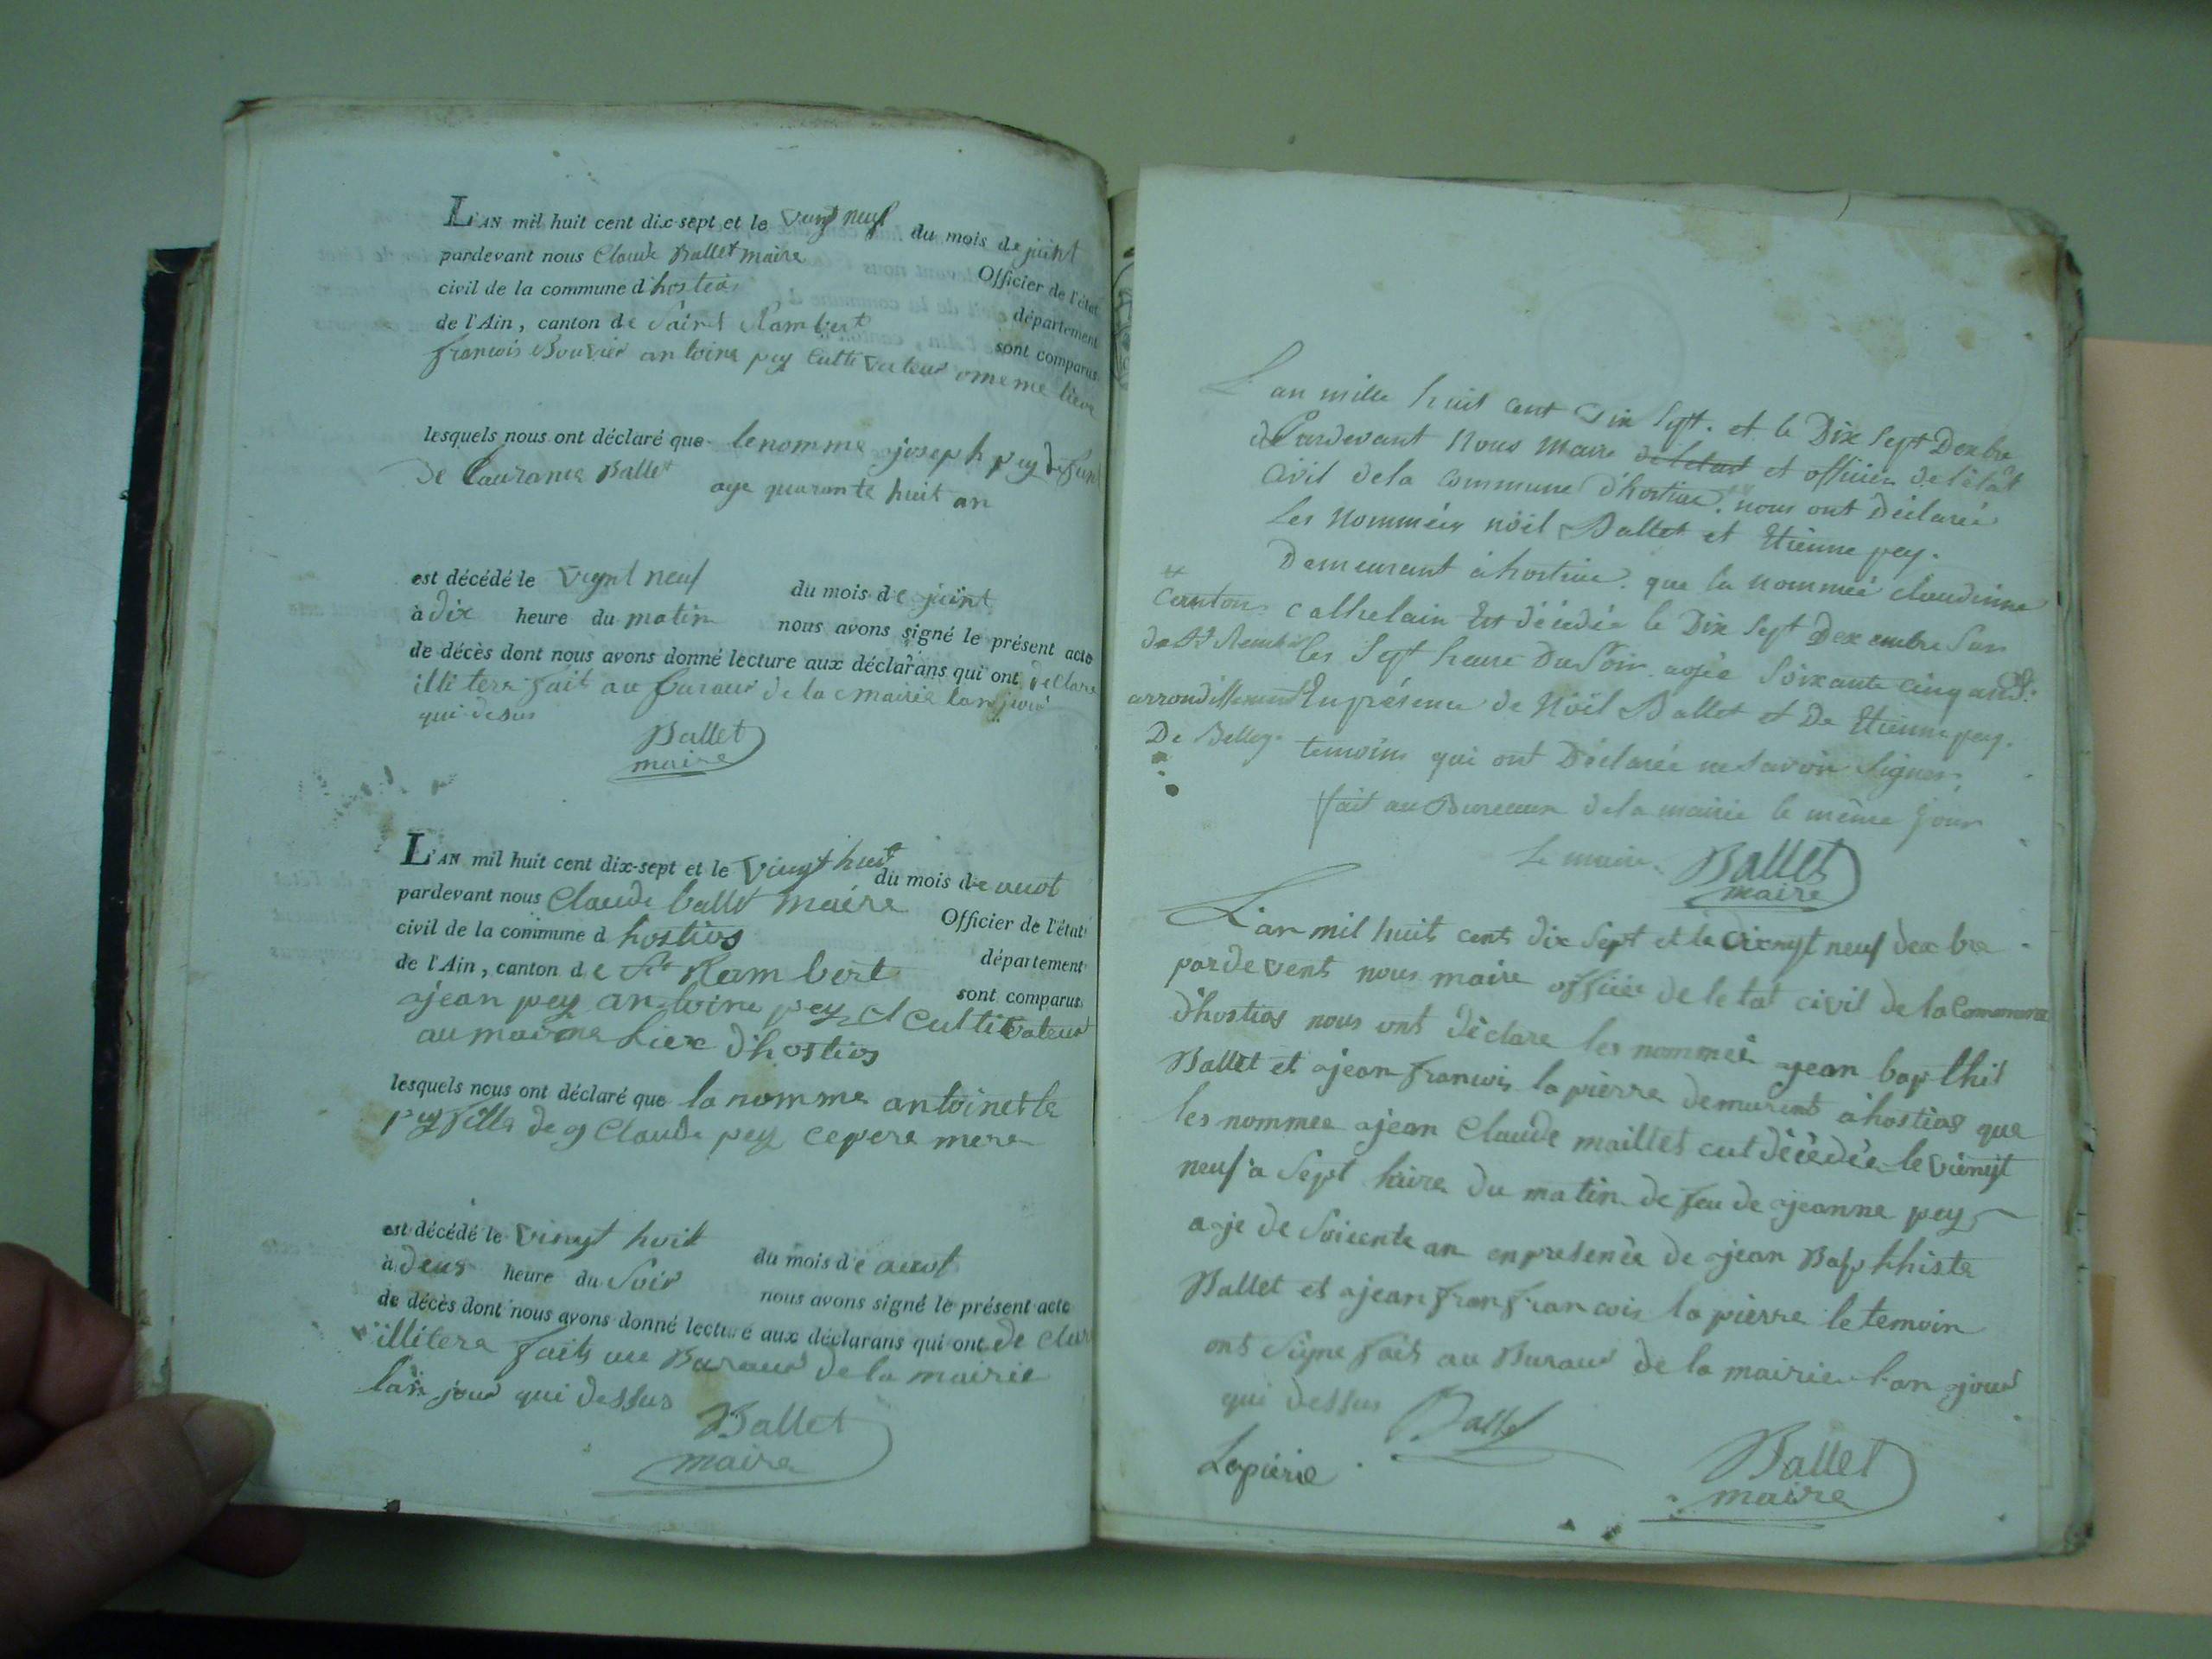 L'AN mil huit cent dix-sept et le vingt neuf du mois de juint
pardevant nous Claude Ballet maire Officier de l'état
civil de la commune d hostias département
de l'Ain, canton de Saint Rambert sont comparus
francois Bouvier antoine pey Cultivateur omeme lieux
lesquels nous ont déclaré que lenomme ajoseph pey defunt
De Laurance Ballet age quarante huit an
est décédé le vignt neuf du mois de juint
à dix heure du matin nous avons signé le présent acte
de décès dont nous avons donné lecture aux déclarans qui ont declare
illitera fait au buraud de la mairie lan joud
qui desus
Ballet
maire
L'AN mil huit cent dix-sept et le Vingt huit du mois de auot
pardevant nous Claude ballet maire Officier de l'état
civil de la commune d hostias département
de l'Ain, canton de St Rambert sont comparus
ajean pey antoine pey et cultivateur
au maime Liex d'hostias
lesquels nous ont déclaré que la nomme antoinette
pey fille de Claude pey ce pere mere
est décédé le vingt huit du mois de auot
à deus heure du Soir nous avons signé le présent acte
de décès dont nous avons donné lecture aux déclarans qui ont de clare
illitera fait au Buraud de la mairie
lan joud qui dessus
Ballet
maire
L'an mille huit cent Dix Sept. et le Dix Sept Dexbre
Pardevant Nous Maire de letat et officier de l'état
Civil dela Commune d'hostias. nous ont déclarée
Les Nommés nöel Ballet et Etienne pey.
Demeurant à hostias. que la nommée claudinne
cathelain Est décédée le Dix Sept Dexembre Sur
les Sept heure Du Soir agée Soixante cinq ans.
Enprésence de Nöel Ballet et De Etienne pey.
temoins qui ont Déclarée ne Savoir Signer.
fait au Bureaux dela mairie le même jour
Canton
de St Rembert
arrondissement
De Belley.
Le maire. Ballet
maire
L'an mil huit cent dix Sept et le vienyt neuf dexbre
pardevent nous maire officie de letat civil de la Commune
d'hostias nous ont déclare les nommei ajean bapthis
Ballet et ajean francois lapierre demurent à hostias que
les nommee ajean Claude maillet cut décèdèe le vienyt
neuf a Sept huire du matin de feu de ajeanne pey
aje de Soicente an enpresence de ajean Bapthiste
Ballet et ajean fran francois lapierre le temoin
ont Signe fait au Buraud de la mairie lan ajoud
qui dessus
Ballet
Lapierre
Ballet
maire